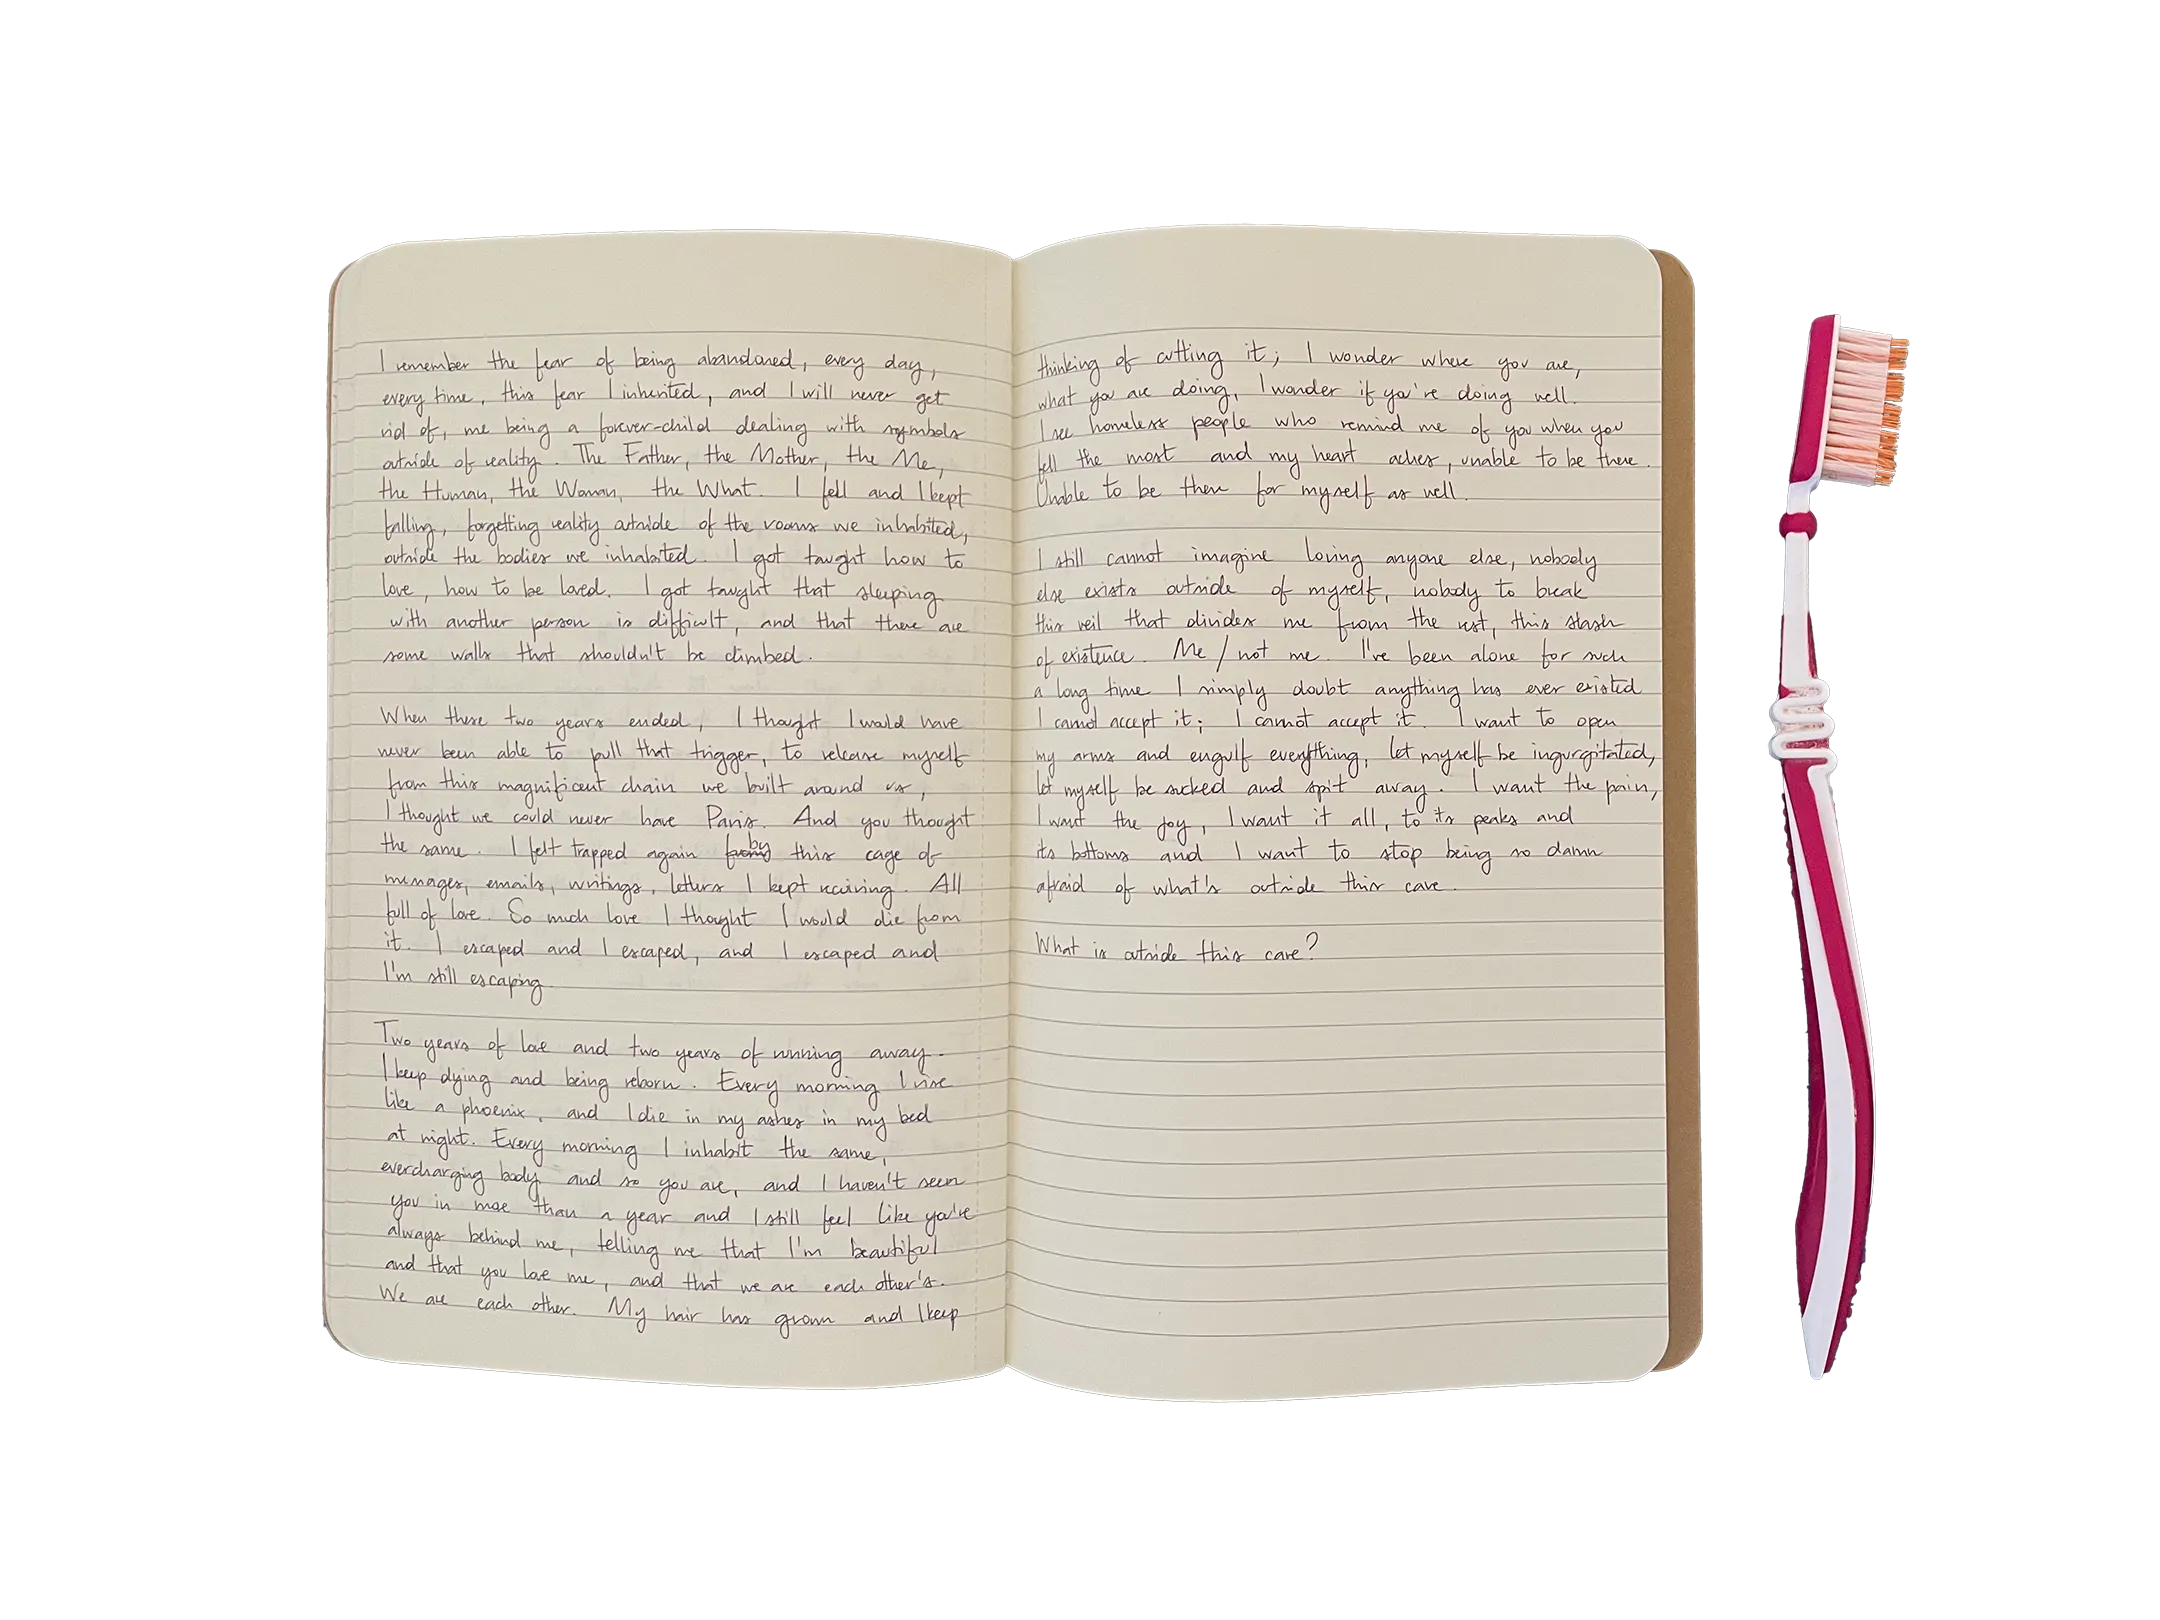 I remember the fear of being abandoned, every day,
every time, this fear I inherited, and I will never get
rid of, me being a forever-child dealing with symbols
outside of reality. The Father, the Mother, the Me,
the Human, the Woman, the What. I fell and I kept
falling, forgetting reality outside of the rooms we inhabited,
outside the bodies we inhabited. I got taught how to
love, how to be loved. I got taught that sleeping
with another person is difficult, and that there are
some walls that shouldn't be climbed.
When these two years ended, I thought I would have
never been able to pull that trigger, to release myself
from this magnificent chain we built around us,
I thought we could never have Paris. And you thought
the same. I felt trapped again by this cage of
messages, emails, writings, letters I kept receiving. All
full of love. So much love I thought I would die from
it. I escaped and I escaped, and I escaped and
I'm still escaping.
Two years of love and two years of running away.
I keep dying and being reborn. Every morning I rise
like a phoenix, and I die in my ashes in my bed
at night. Every morning I inhabit the same,
everchanging body and so you are, and I haven't seen
you in more than a year and I still feel like you're
always behind me, telling me that I'm beautiful
and that you love me, and that we are each other's.
We are each other. My hair has grown and I keep
thinking of cutting it; I wonder where you are,
what you are doing, I wonder if you're doing well.
I see homeless people who remind me of you when you
fell the most and my heart aches, unable to be there.
Unable to be there for myself as well.
I still cannot imagine loving anyone else, nobody
else exists outside of myself, nobody to break
this veil that divides me from the rest, this slash
of existence. Me / not me. I've been alone for such
a long time I simply doubt anything has ever existed
I cannot accept it; I cannot accept it. I want to open
my arms and engulf everything, let myself be ingurgitated,
let myself be sucked and spit away. I want the pain,
I want the joy, I want it all, to its peaks and
its bottoms and I want to stop being so damn
afraid of what's outside this cave.
What is outside this cave?